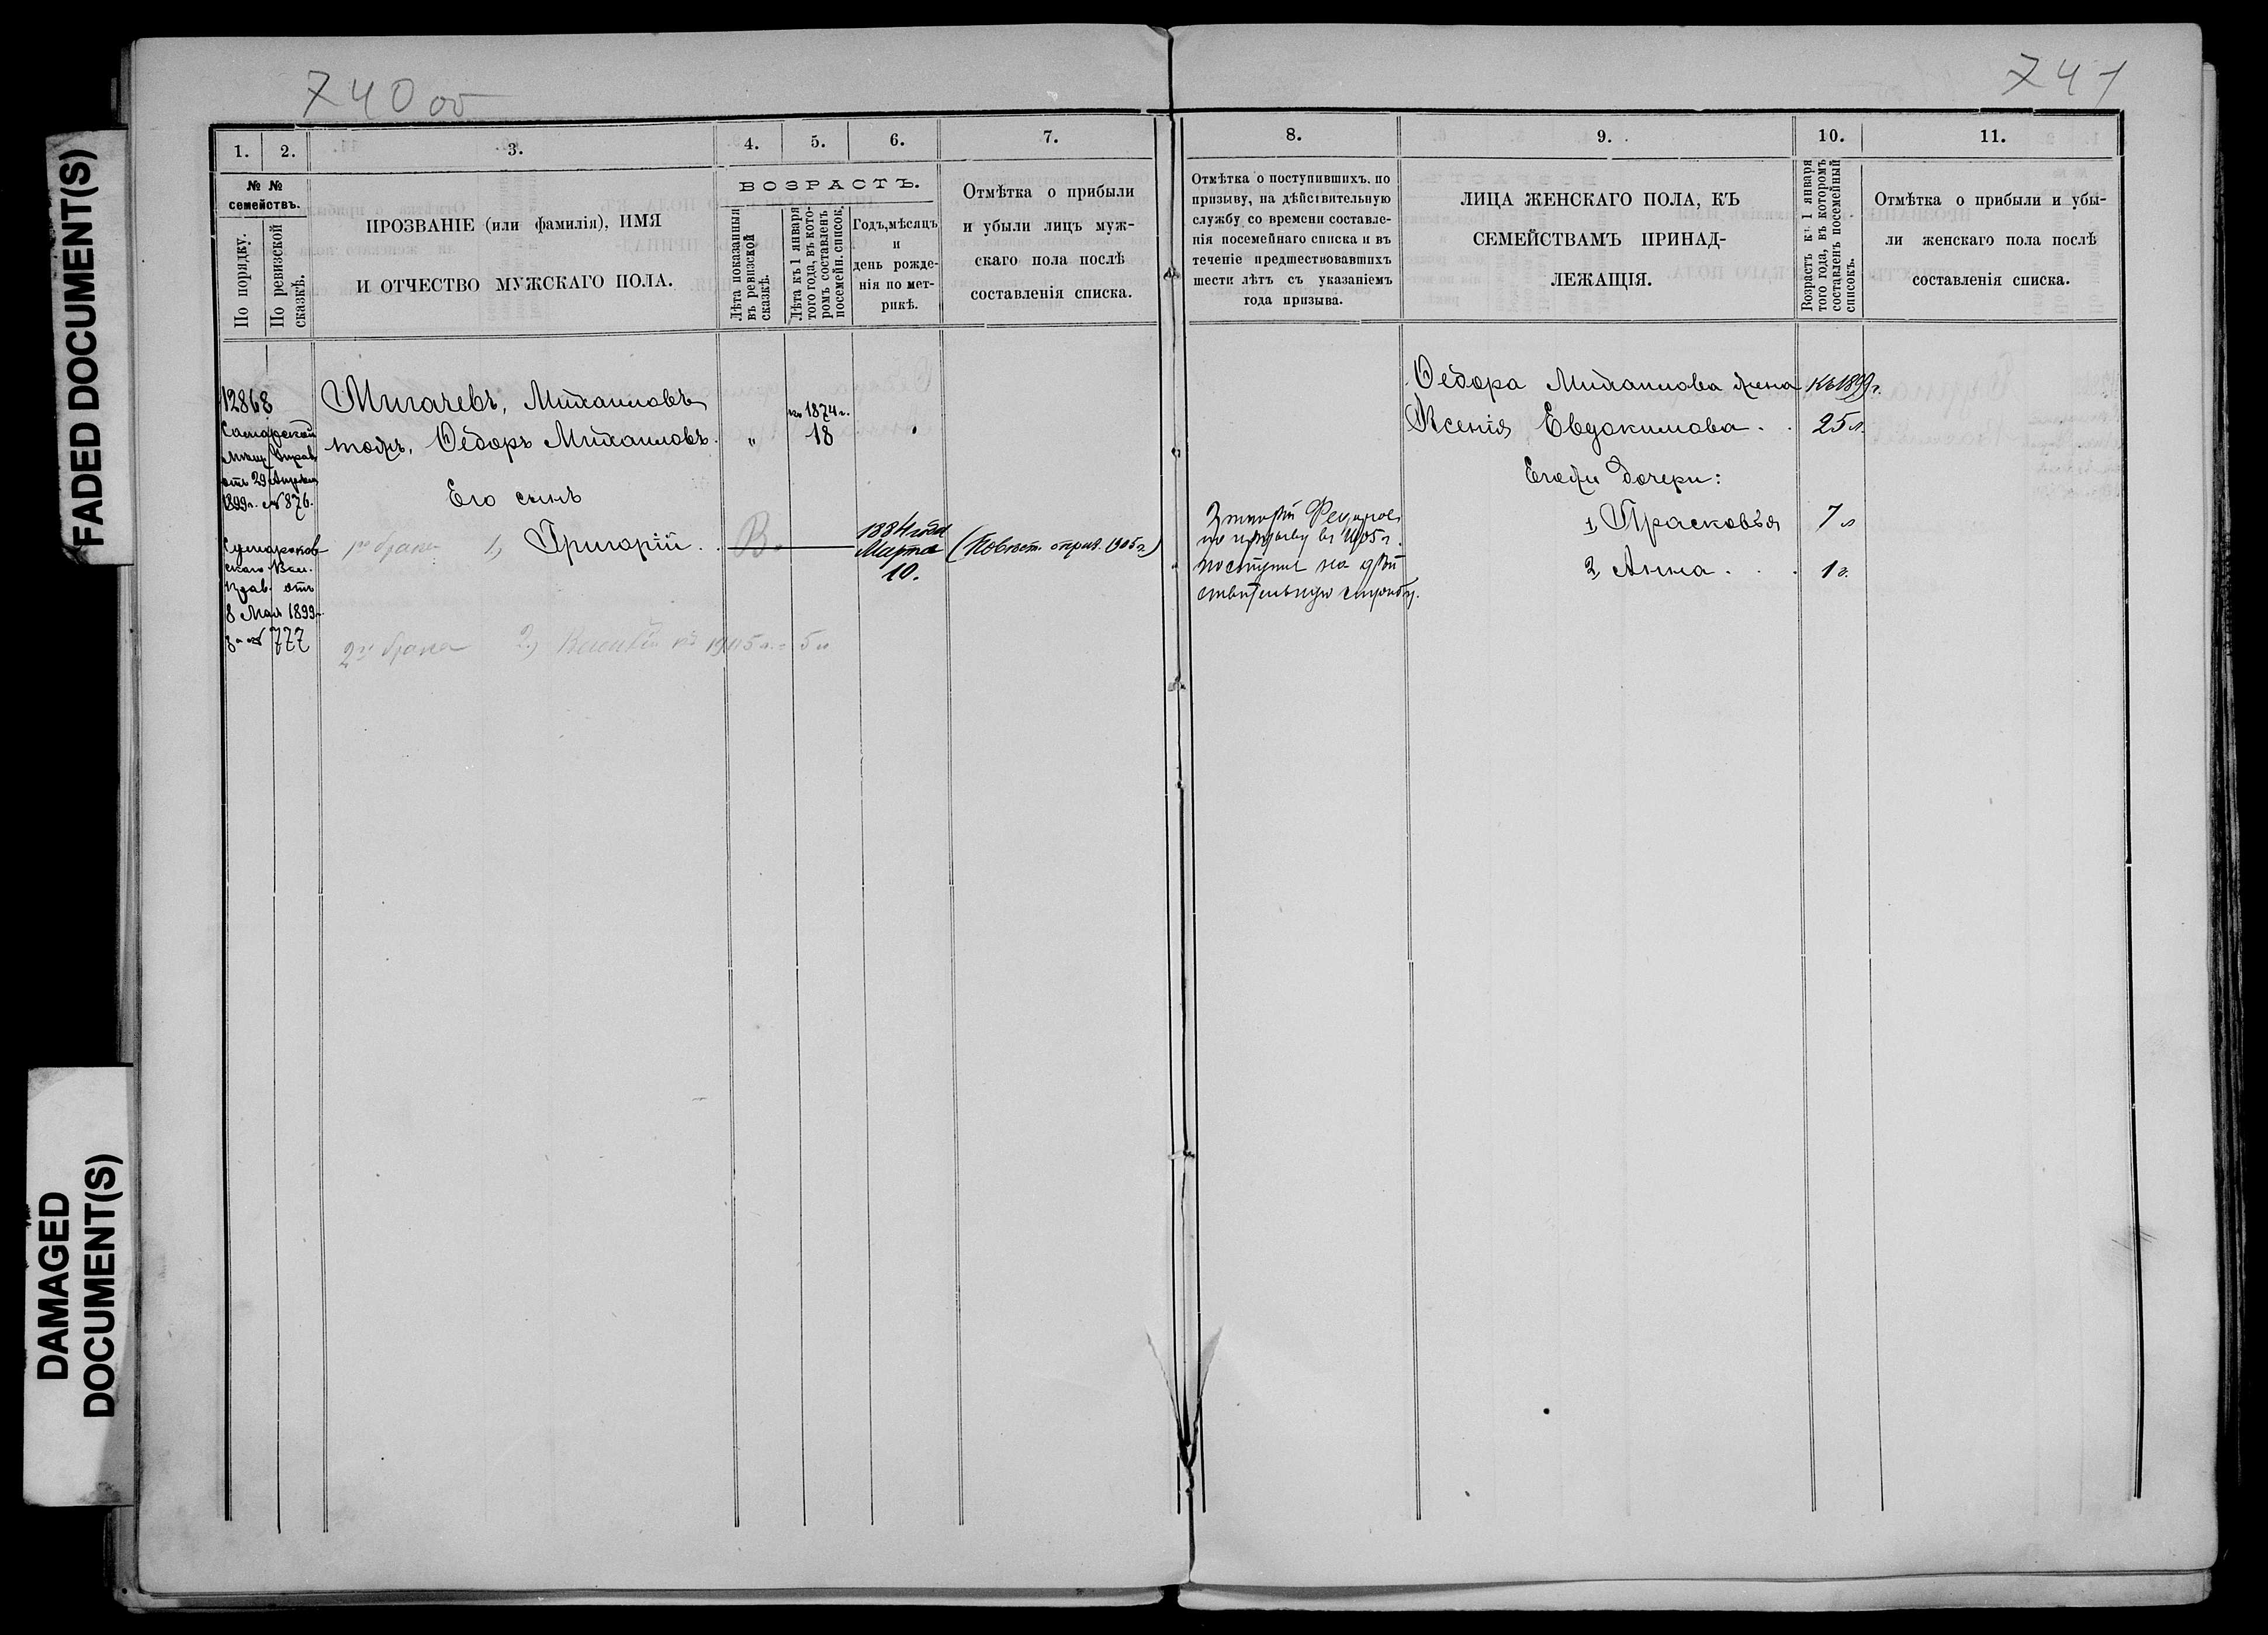 FADED DOCUMENT(S)
DAMAGED
DOCUMENT(S)
740 об
741
1.
2.
3.
4.
5.
6.
7.
8.
9.
10.
11.
№ №
семействъ.
По порядку.
По ревизской
сказкѣ.
ПРОЗВАНІЕ (или фамилія), ИМЯ
И ОТЧЕСТВО МУЖСКАГО ПОЛА.
ВОЗРАСТЪ.
Лѣта показанныя
въ ревизской
сказкѣ.
Лѣта къ 1 января
того года, въ кото-
ромъ составленъ
посемейн. список.
Годъ, мѣсяцъ
и
день рожде-
нія по мет-
рикѣ.
Отмѣтка о прибыли
и убыли лицъ муж-
скаго пола послѣ
составленія списка.
Отмѣтка о поступившихъ, по
призыву, на дѣйствительную
службу со времени составле-
нія посемейнаго списка и въ
теченіе предшествовавшихъ
шести лѣтъ съ указаніемъ
года призыва.
ЛИЦА ЖЕНСКАГО ПОЛА, КЪ
СЕМЕЙСТВАМЪ ПРИНАД-
ЛЕЖАЩІЯ.
Возрастъ къ 1 января
того года, въ которомъ
составленъ посемейный
списокъ.
Отмѣтка о прибыли и убы-
ли женскаго пола послѣ
составленія списка.
12868
Самарской
Мѣщ. Управ.
отъ 29 Апрѣля
1899 г. № 876.
скаго Вол.
Правл. отъ
8 Мая 1899 г.
за № 777
Мигачевъ, Михаиловъ
тожъ, Ѳедоръ Михаиловъ. "
къ 1874 г.
18
Его сынъ
1го брака 1, Григорій. . В.
1884 года
Марта
10.
(Повѣст. отправ. 1905 г.)
2го брака 2, Василій къ 1905 г. = 5 л
Григорій Федоров
по призыву въ 1905 г.
поступил на дѣй
ствительную службу.
Ѳедора Михаилова жена Къ 1899 г.
Ксенія Евдокимова. . 25 л.
Егоже дочери:
1, Прасковья 7 л
2, Анна. . . 1 г.